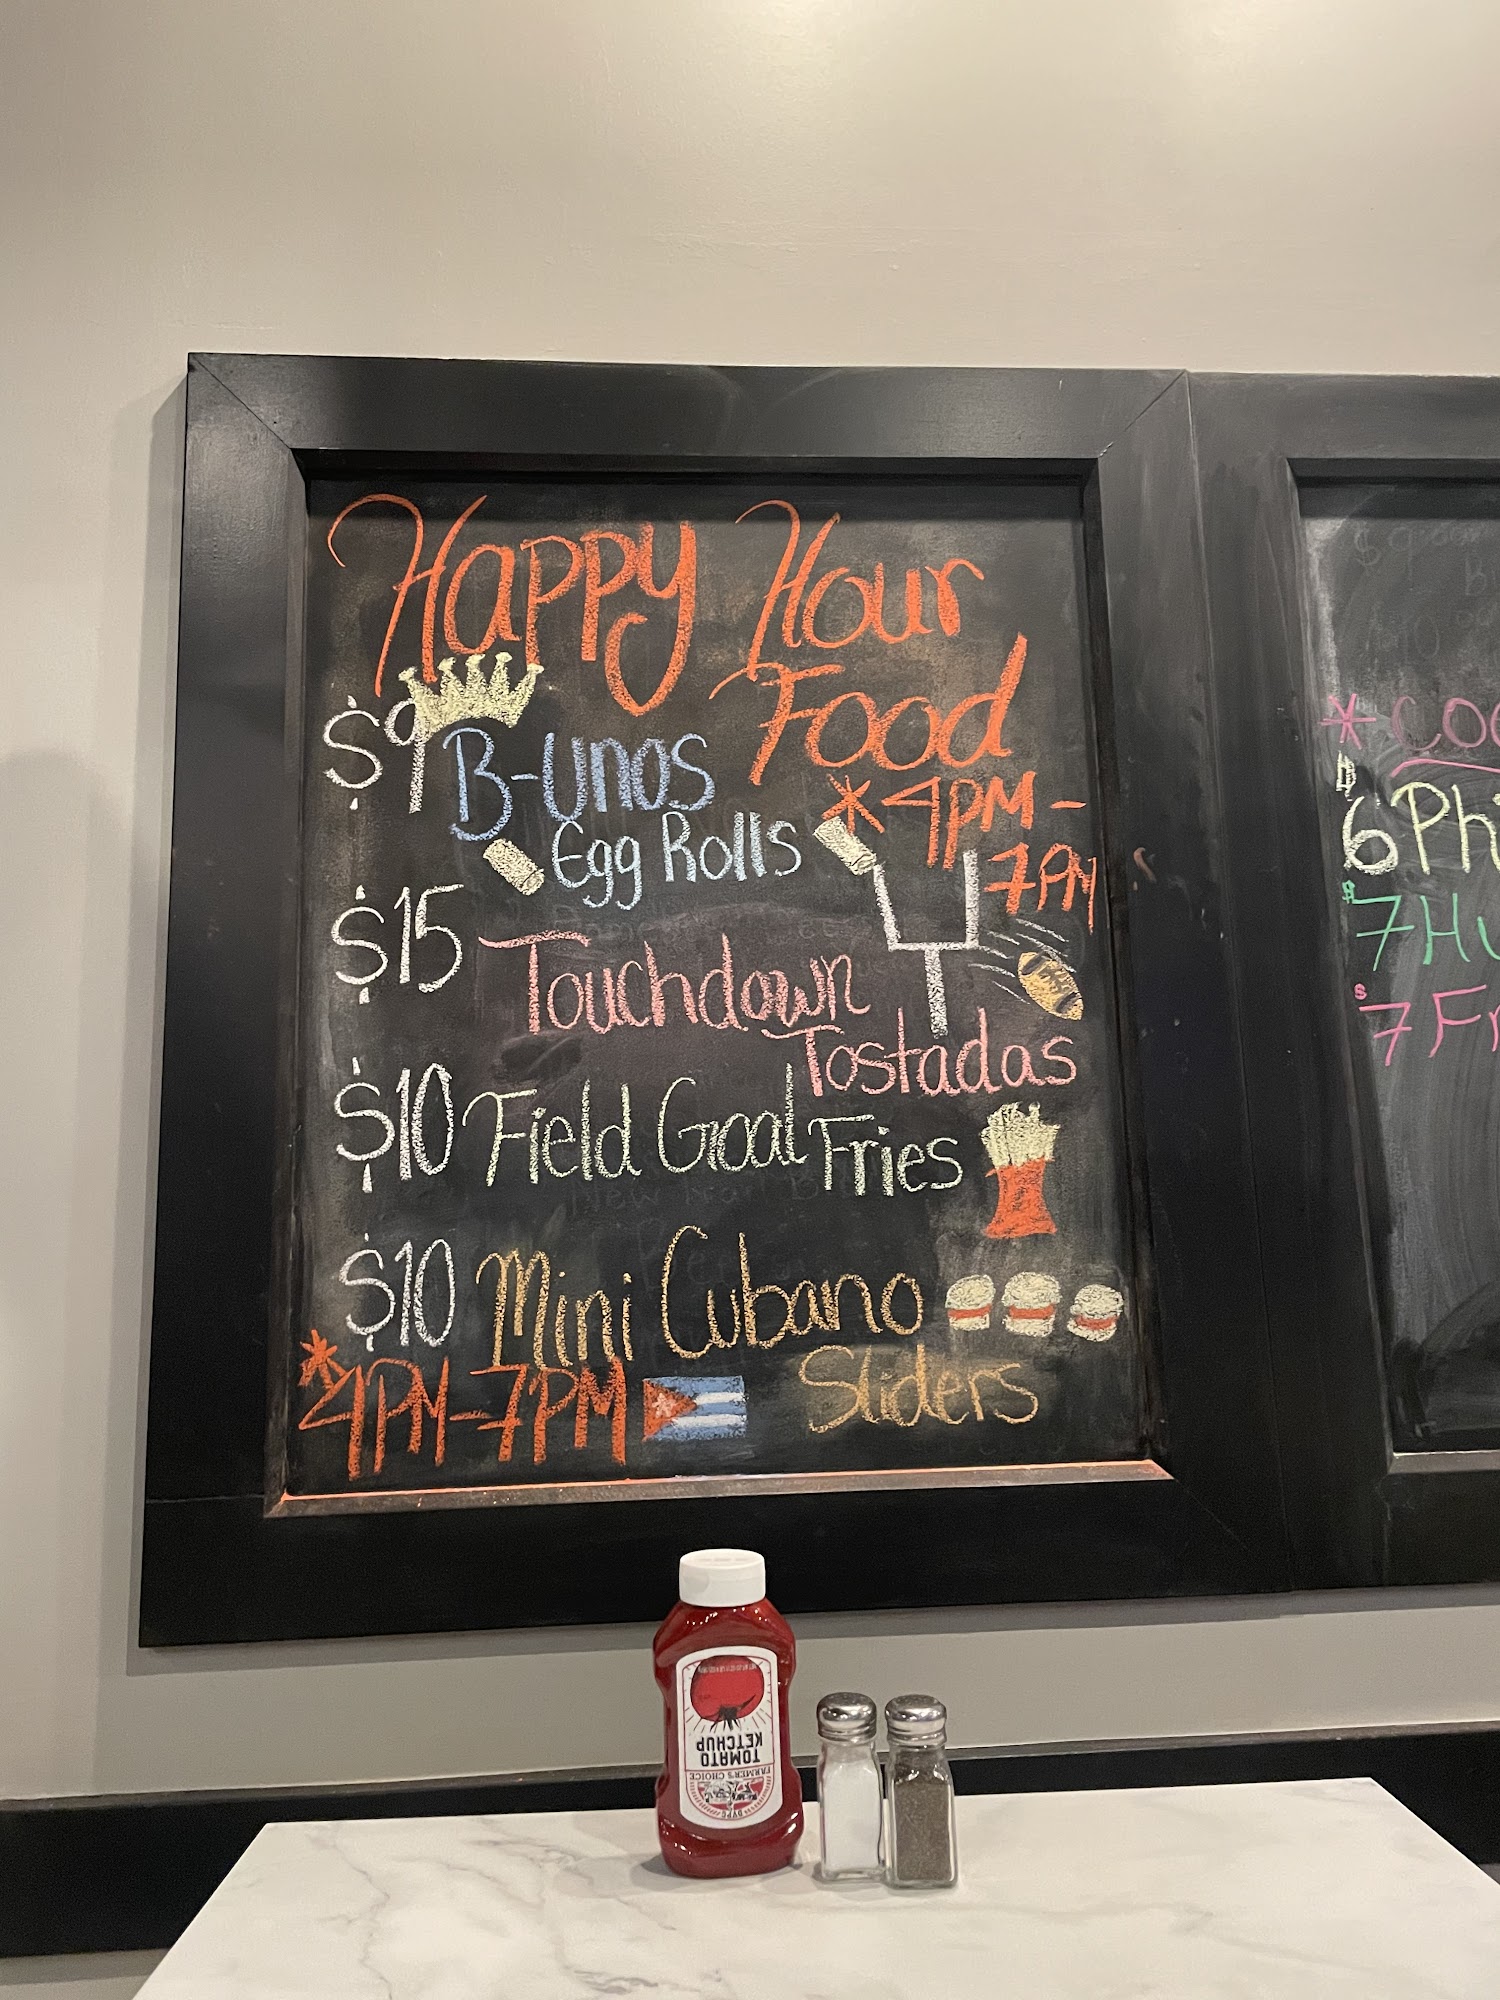 Happy Hour
Food
*4PM-
7PM
$9 B-Unos
Egg Rolls
$15 Touchdown
Tostadas
$10 Field Goal Fries
$10 Mini Cubano
Sliders
*4PM-7PM
*
$
6
$
7
$
7
TOMATO
KETCHUP
FARMER'S CHOICE